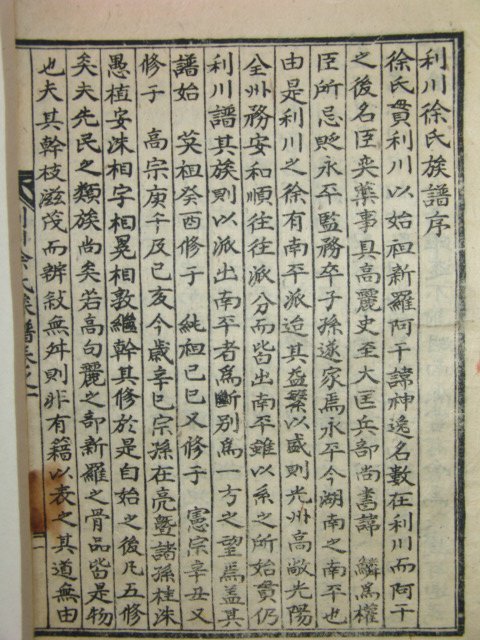 利川徐氏族譜序
徐氏貫利川以始祖新羅阿干諱神逸名數在利川而阿干
之後名臣奕葉事具高麗史至大匡兵部尚書諱 鱗爲權
臣所忌貶永平監務卒子孫遂家焉永平今湖南之南平也
由是利川之徐有南平派迨其益繁以盛則光州高敞光陽
全州務安和順往往派分而皆出南平雖以系之所始貫仍
利川譜其族則以派出南平者爲斷別爲一方之望焉盖其
譜始 英祖癸酉修于 純祖己巳又修于 憲宗辛丑又
修于 高宗庚午及己亥今歲辛巳宗孫在亮暨諸孫桂洙
愚植安洙相字相晃相敦繼幹其修於是自始之後凡五修
矣夫先民之類族尚矣若高句麗之部新羅之骨品皆是物
也夫其幹枝滋茂而辨敍無舛則非有籍以表之其道無由
利川徐氏族譜卷之一